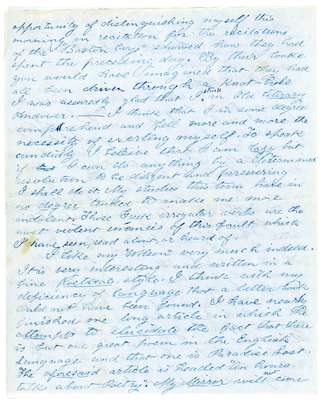 opportunity of distinguishing myself this
morning in recitation for the recitations
of the "Boston boys" showed how they had
spent the preceding day. By their looks
you would have imagined that they had
all been driven through a Knot-hole
I was assuredly glad that I
Andover. — I think that I in some degree
comprehend and feel more and more the
necessity of exerting myself. To speak
candidly I believe that I am lazy but
if I can do anything by a determined
resolution to be diligent and persevering
I shall do it. My studies this term have in
no degree tended to make me more
indolent. These Greek irregular verbs are the
most violent enemies of this fault which
I have seen, read about or heard of.
I like my very much indeed.
It is very interesting and written in a
fine style. I think with my
deficiency of language that a better book
could not have been found. I have nearly
finished one long article in which he
attempts to elucidate the fact that there
is but one great poem in the English
Language and that one is Paradise Lost.
The aforesaid article is headed "An hour's
talk about Poetry". My Mirror will come